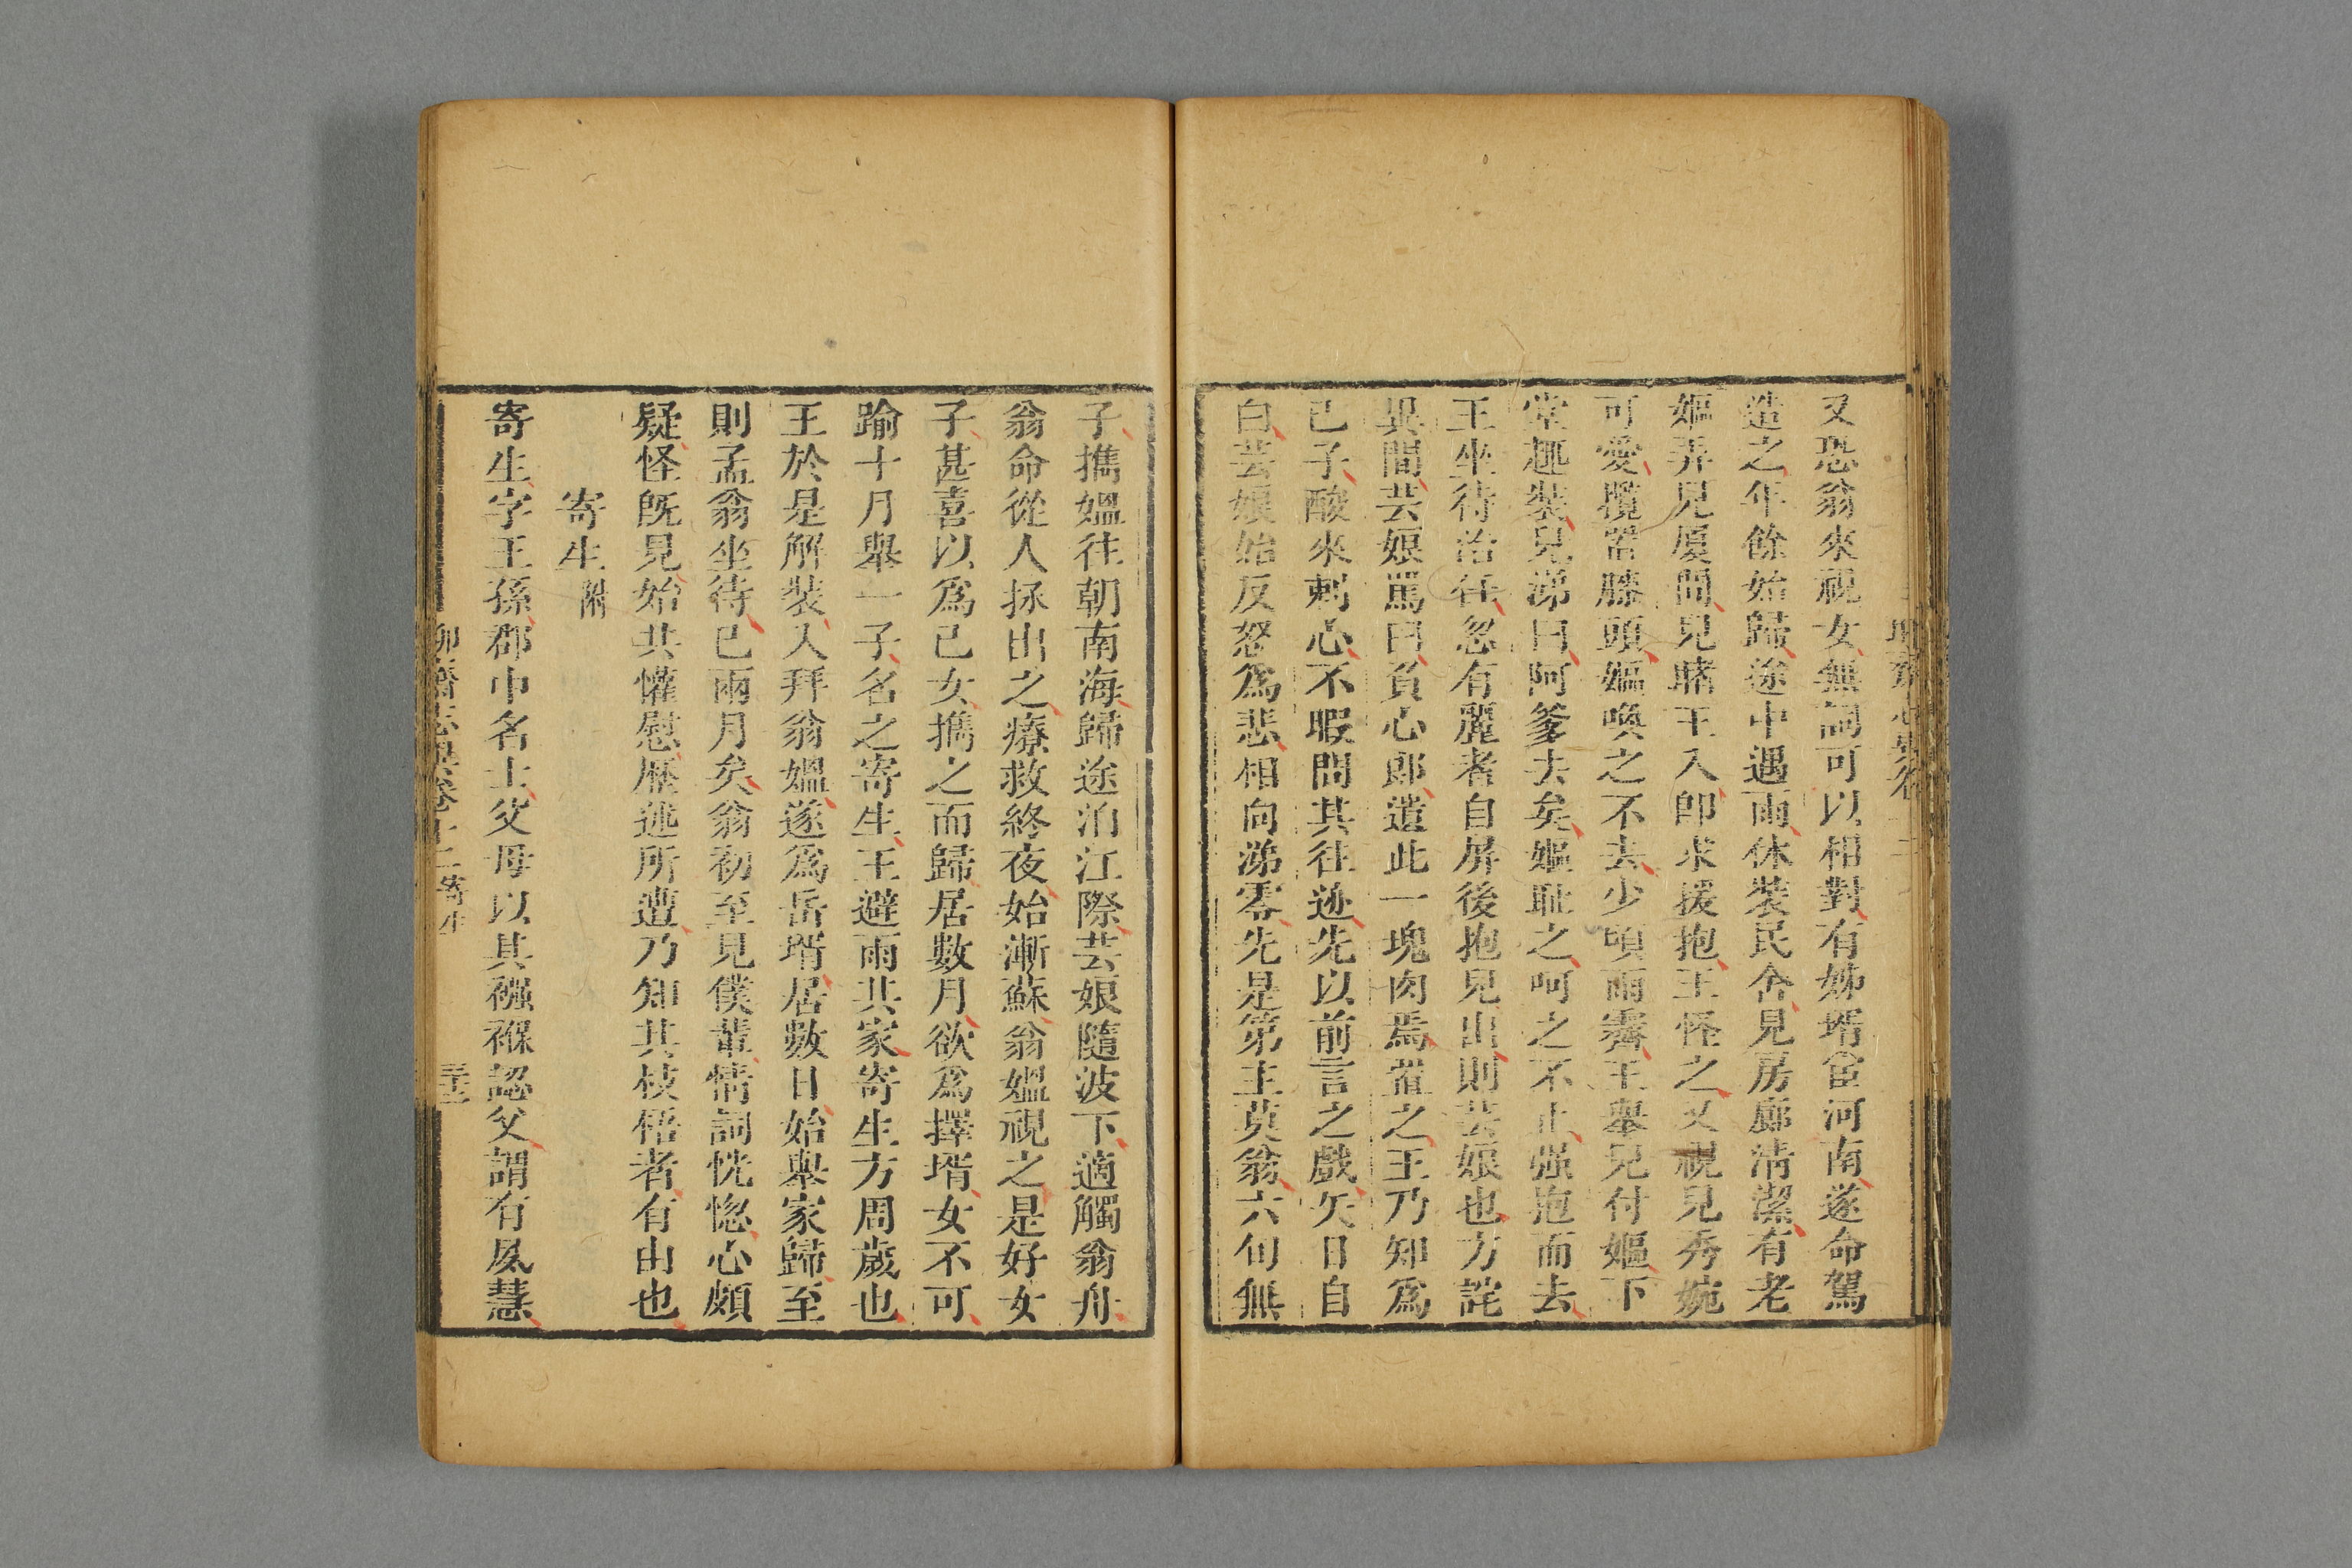 又恐翁來視女無詞可以相對有姊壻宦河南遂命駕
造之年餘始歸途中遇雨休裝民舍見房廊淸潔有老
嫗弄兒厦間兒睹王入卽求援抱王怪之又視兒秀婉
可愛攬置膝頭嫗喚之不去少頃雨霽王舉兒付嫗下
堂趣裝兒涕曰阿爹去矣嫗耻之呵之不止强抱而去
王坐待治任忽有麗者自屏後抱兒出則芸娘也方詫
異間芸娘罵曰負心郎遺此一塊肉焉置之王乃知爲
已子酸來刺心不暇問其往迹先以前言之戲矢日自
白芸娘始反怒爲悲相向涕零先是第主莫翁六旬無
子攜媼往朝南海歸途泊江際芸娘隨波下適觸翁舟
翁命從人拯出之療救終夜始漸蘇翁媼視之是好女
子甚喜以爲己女攜之而歸居數月欲爲擇壻女不可
踰十月舉一子名之寄生王避雨其家寄生方周歲也
王於是解裝入拜翁媼遂爲岳壻居數日始舉家歸至
則孟翁坐待已兩月矣翁初至見僕輩情詞恍惚心頗
疑怪旣見始共懽慰歷述所遭乃知其枝梧者有由也
寄生附
寄生字王孫郡中名士父母以其襁褓認父謂有夙慧
卷十二 寄生